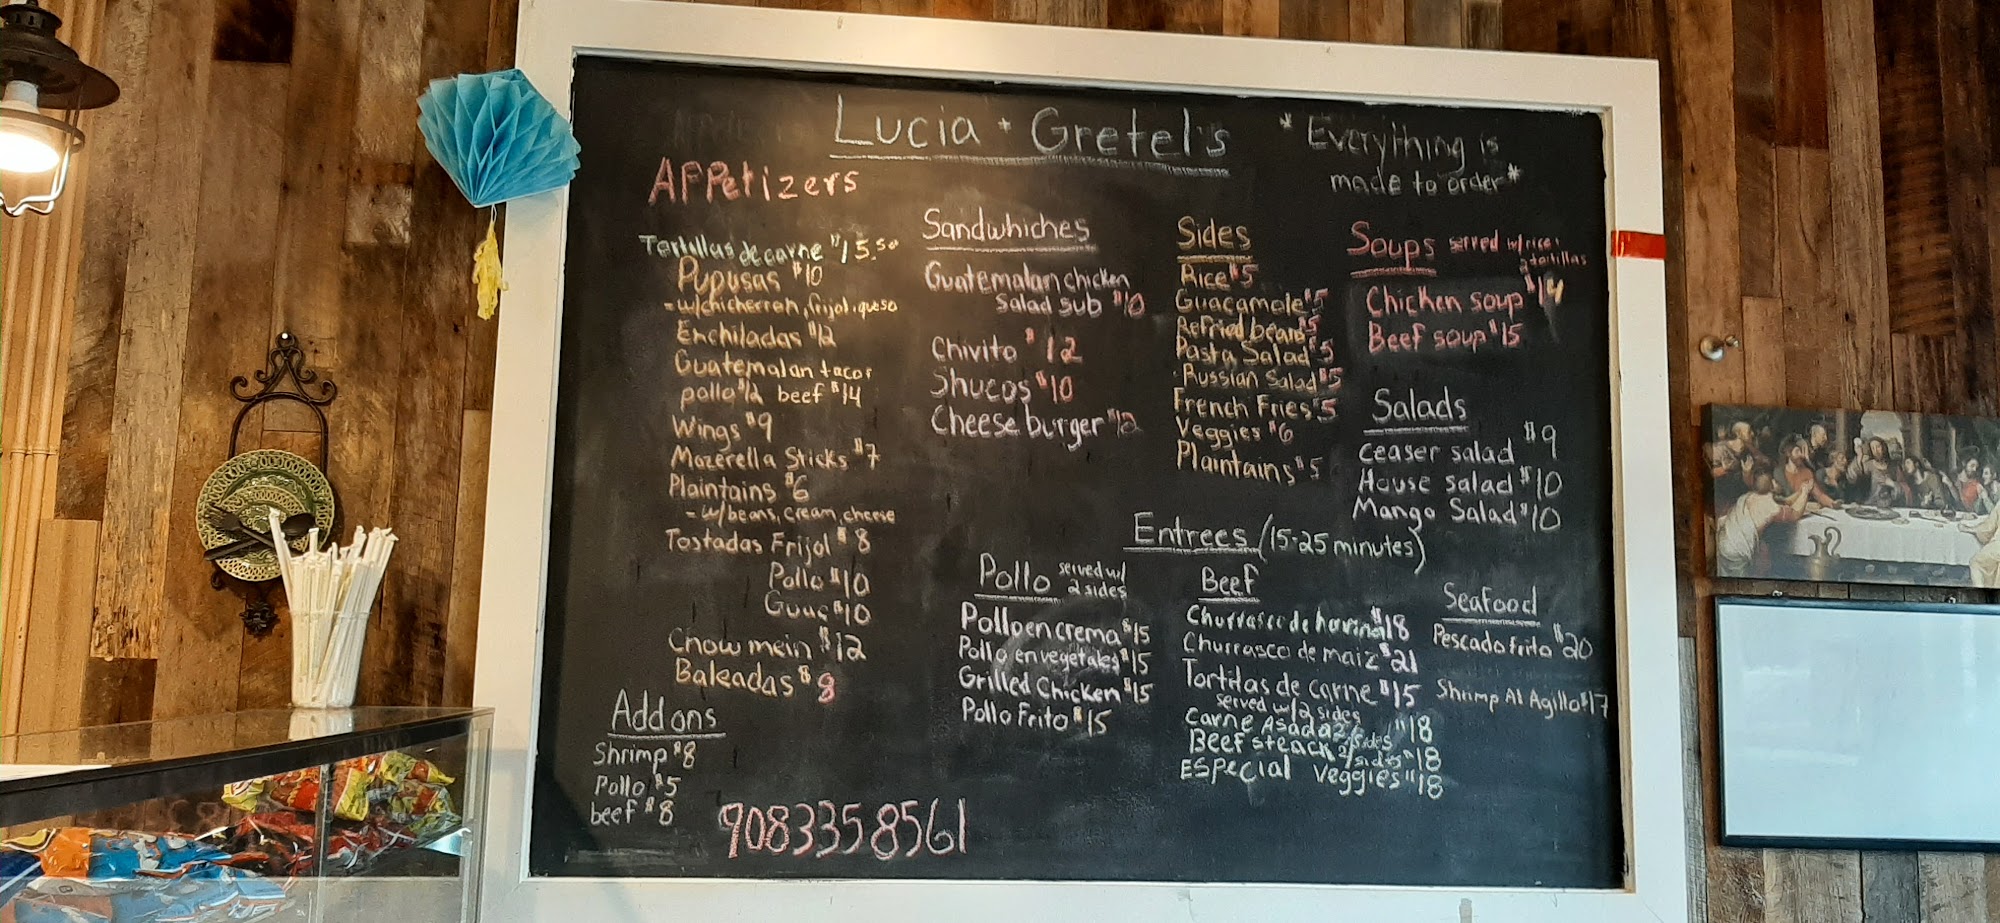 Lucia + Gretel's
* Everything is
made to order *
APPetizers
Tortillas de carne $15.50
Pupusas $10
- w/chicherron, frijol, queso
Enchiladas $12
Guatemalan tacos
pollo $12 beef $14
Wings $9
Mozerella Sticks $7
Plaintains $6
- w/beans, cream, cheese
Tostadas Frijol $8
Pollo $10
Guac $10
Chow mein $12
Baleadas $8
Add ons
Shrimp $8
Pollo $5
beef $8
9083358561
Sandwhiches
Guatemalan chicken
Salad sub $10
Chivito $12
Shucos $10
Cheese burger $12
Sides
Rice $5
Guacamole $5
Refried beans $5
Pasta Salad $5
Russian Salad $5
French Fries $5
Veggies $6
Plaintains $5
Soups served w/rice
2 tortillas
Chicken soup $14
Beef soup $15
Salads
Ceaser salad $9
House salad $10
Mango Salad $10
Entrees (15-25 minutes)
Pollo served w/
2 sides
Pollo en crema $15
Pollo en vegetales $15
Grilled Chicken $15
Pollo Frito $15
Beef
Churrasco de harina $18
Churrasco de maiz $21
Tortitas de carne $15
served w/2 sides
Carne Asada 2/sides $18
Beef steack 2/sides $18
ESPecial Veggies $18
Seafood
Pescado frito $20
Shrimp Al Agillo $17